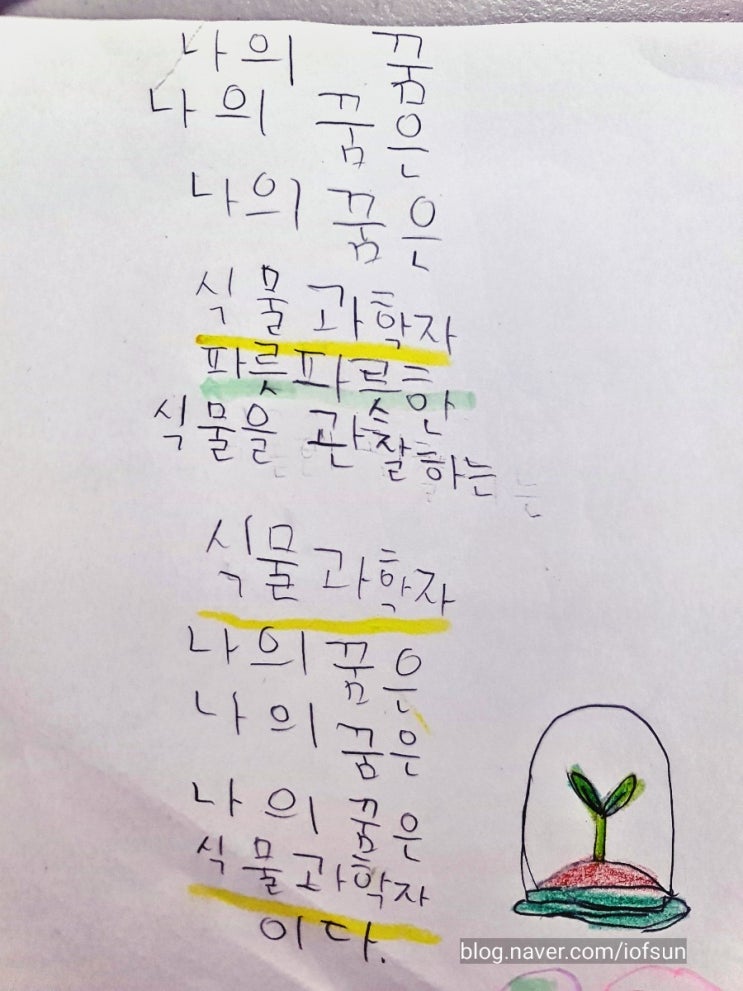 나의 꿈
나의 꿈은
나의 꿈은
식물 과학자
파릇파릇한
식물을 관찰하는
식물 과학자
나의 꿈은
나의 꿈은
나의 꿈은
식물과학자
이다.
blog.naver.com/iofsun